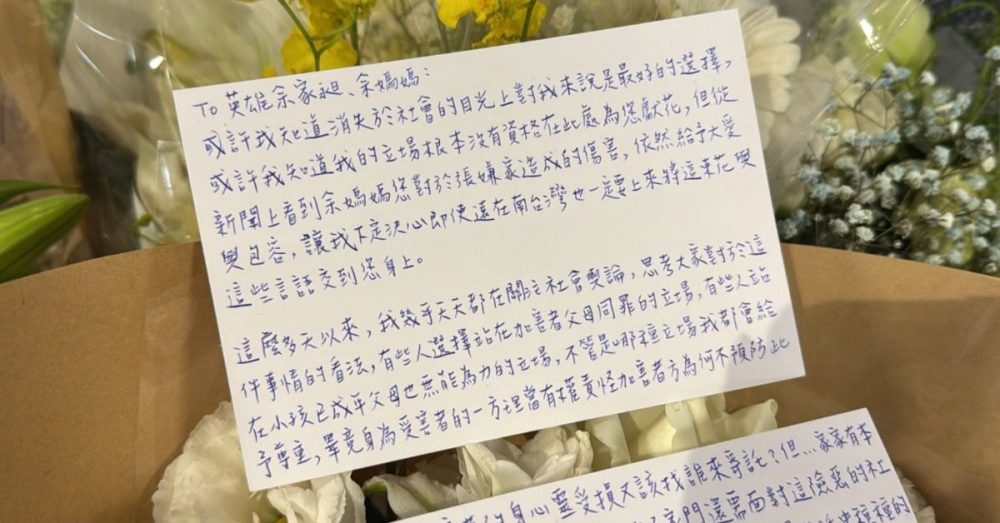 TO 英雄余家昶、余媽媽:
或許我知道消失於社會的目光上對我來說是最好的選擇,
或許我知道我的立場根本沒有資格在此處為您獻花,但從
新聞上看到余媽媽您對於張嫌家造成的傷害,依然給予大愛
與包容,讓我下定決心即使遠在南台灣也一定要上來將這束花與
這些言語交到您身上。
這麼多天以來,我幾乎天天都在關注社會輿論,思考大家對於這
件事情的看法,有些人選擇站在加害者父母同罪的立場,有些人站
在小孩已成年父母也無能為力的立場,不管是哪種立場我都會給
予尊重,畢竟身為受害者的一方理當有權責怪加害者方為何不預防此
身心靈受損又該找誰來寄託?但...家家有本
家門還需面對這險惡的社
種種的